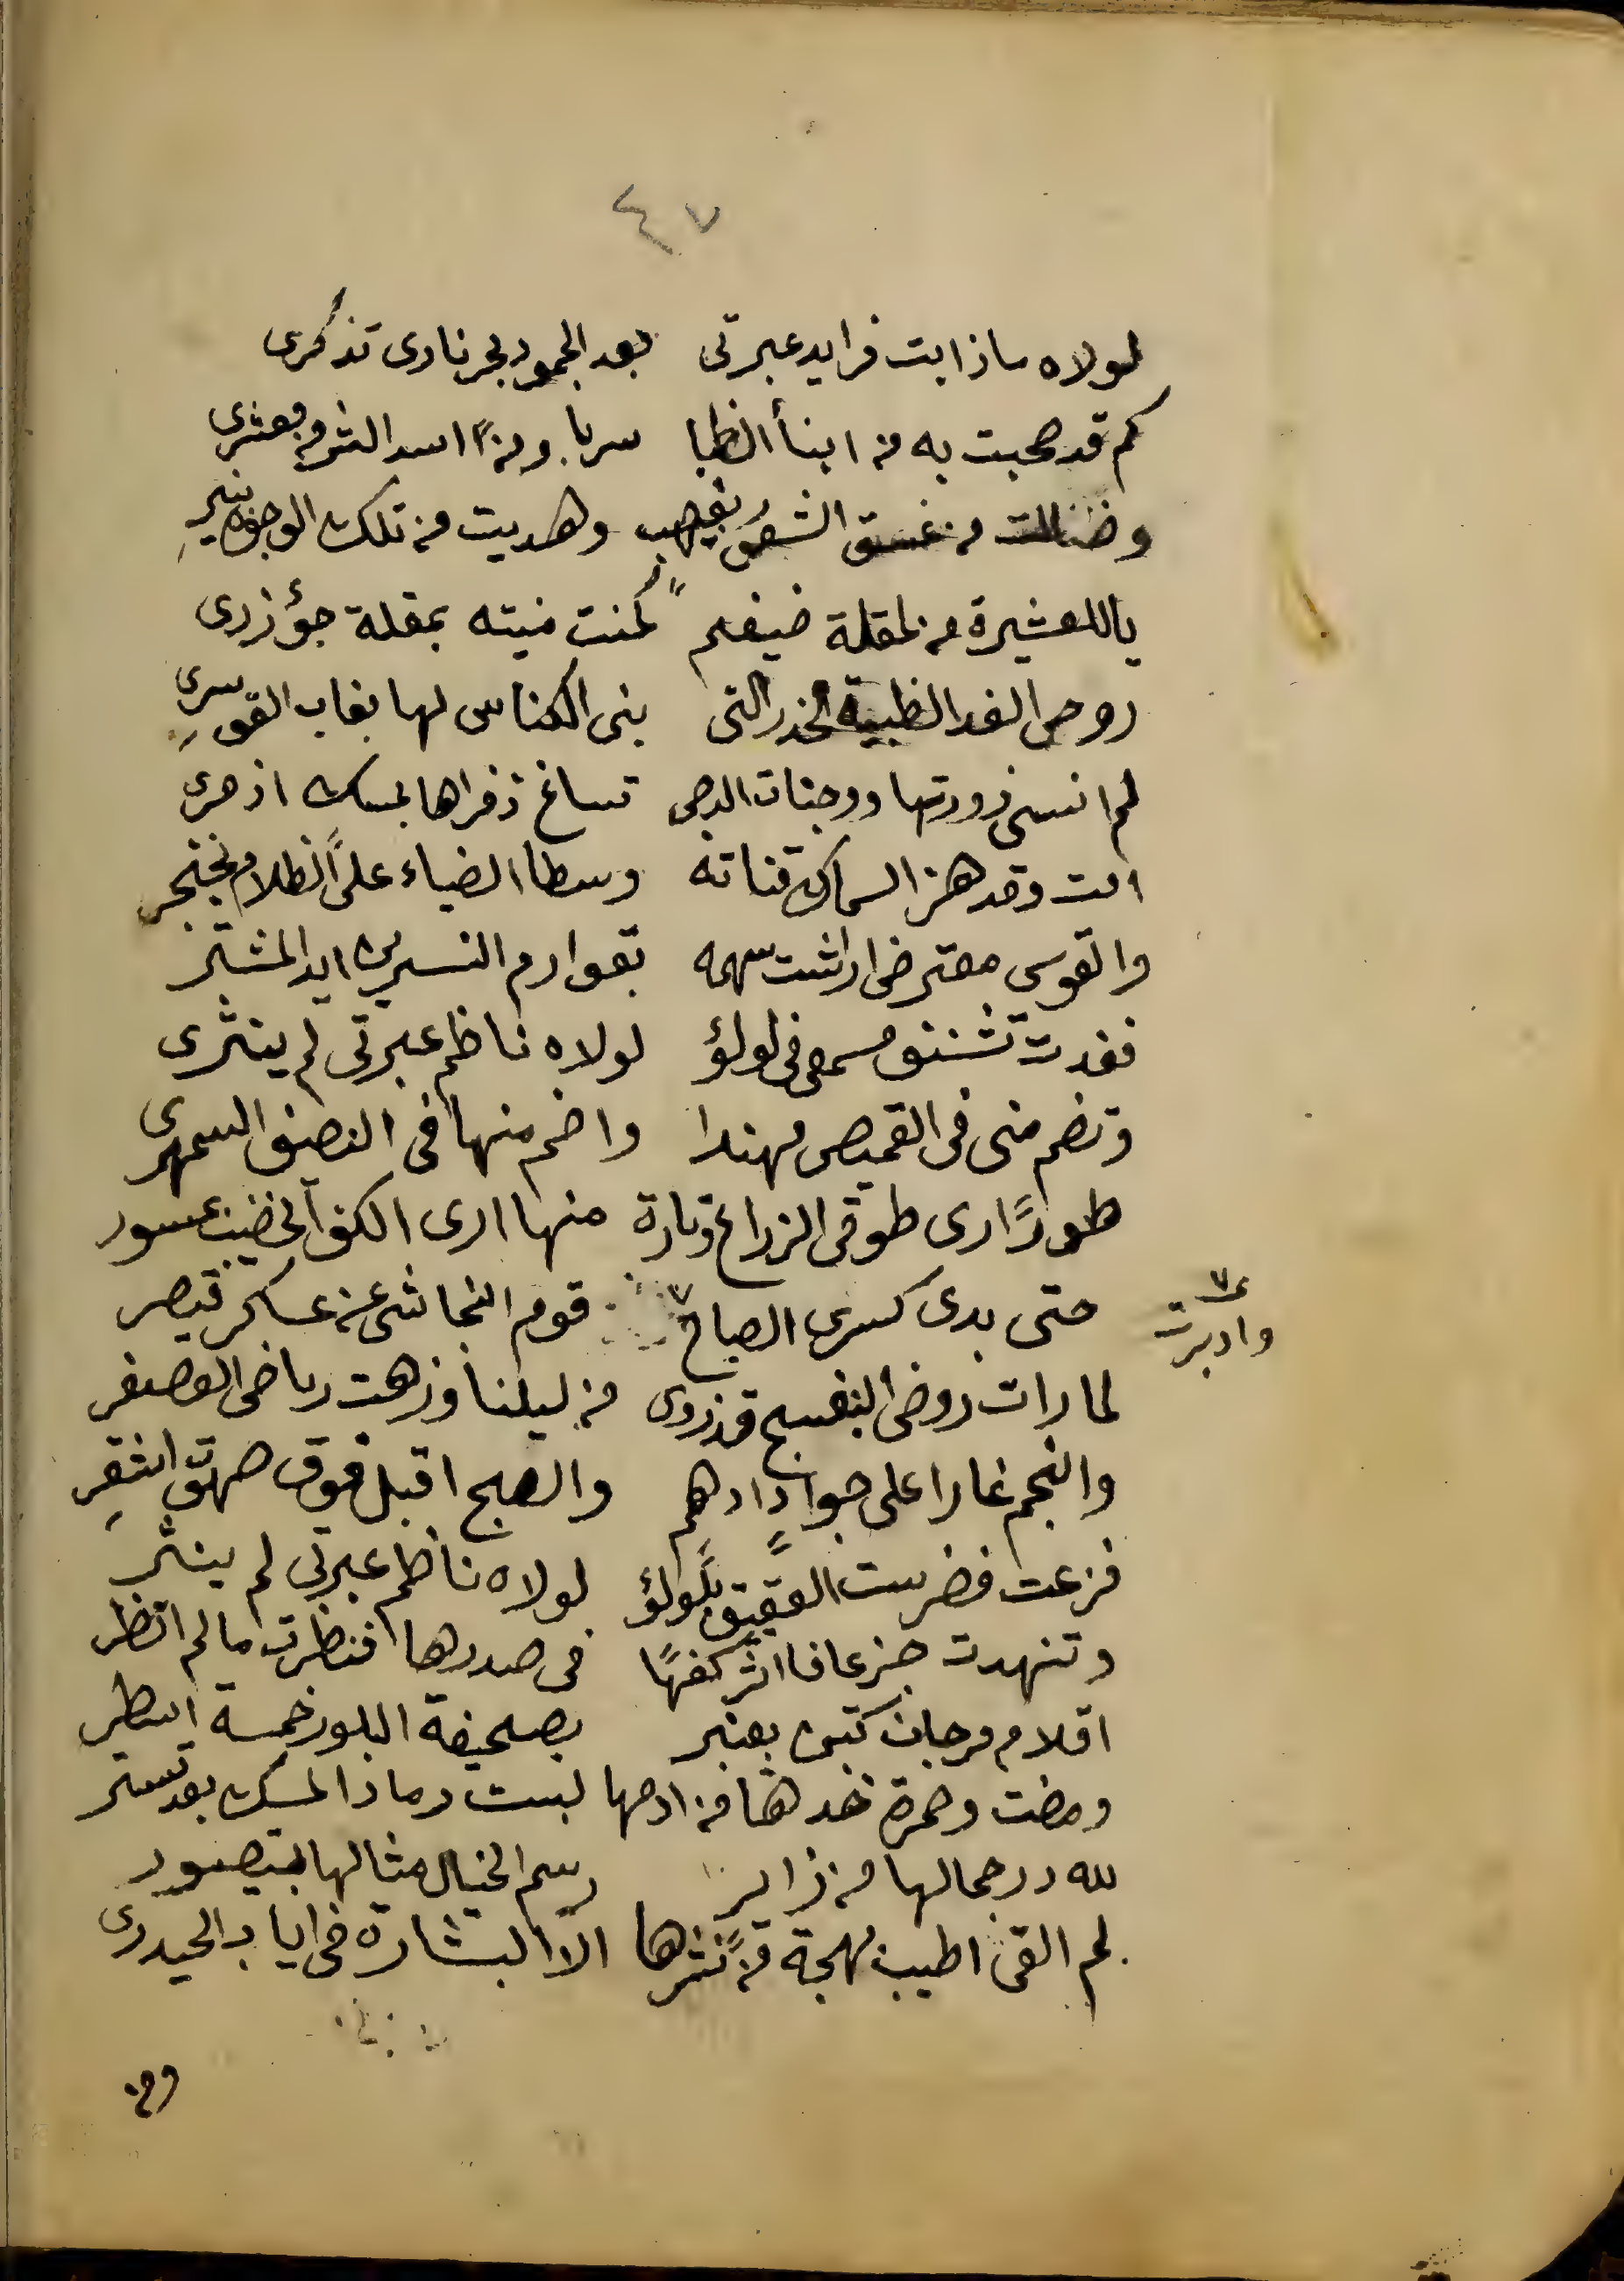 ٤٧
لولاه ماذابت فرايد عبرتى بعد الجمود بجر نارى تذكرى
كم قد صحبت به من ابنأ الظبا سربا ومن اسد الشرى معشرى
وضللت من غسق الشعور بغيهب وهديت من تلك الوجوه بنير
ياللعشيرة من لمقلة ضيغم كمنت منيته بمقلة جؤذرى
روحى الفدا لظبية الخدر التى بنى الكناس لها بغاب القسورى
لم انسى زورتها ووجنات الدجى تساغ ذفراها بمسك اذفرى
امت وقد هز السماك قناته وسطا الضياء على الظلام بخنجر
والقوس معترضا راشت سهمه بقوادم النسرين ايد المشتر
فغدت تشنف مسمعى فى لولؤ لولاه ناظم عبرتى لم ينثرى
وتضم منى فى القميص مهندا واضم منها فى النصيف السمهرى
طورًا ارى طوقى الزراع وتارة منها ارى الكف الخضيب مسور
حتى بدى كسرى الصباح قوم النجاشى عن عساكر قيصر
وادبرت
لما رات روض البنفسج قد زوى من ليلنا وزهت رياض العصفر
والنجم غارا على جوادٍ ادهمٍ والصبح اقبل فوق صهوة اشقرِ
فزعت فضرست العقيق بلولؤ لولاه ناظم عبرتى لم ينثر
وتنهدت جزعا فااثر كفها فى صدرها فنظرت ما لم انظر
اقلام مرجان كتبن بعنبر بصحيفة البلور خمسة اسطر
ومضت وحمرة خدها من ادمها لبست رماد المسك بعد تستر
لله در جمالها من زاير رسم الخيال مثالها بتصور
لم القى اطيب بهجة من نشرها الا البشارة فى اياب الحيدرى